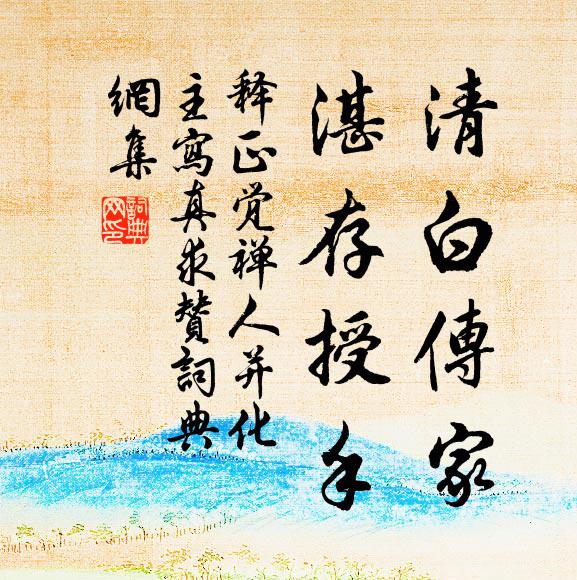 清白傳家
湛存授手
释正觉禅人并化
主寫真求贊詞典
網集
詞典
网印